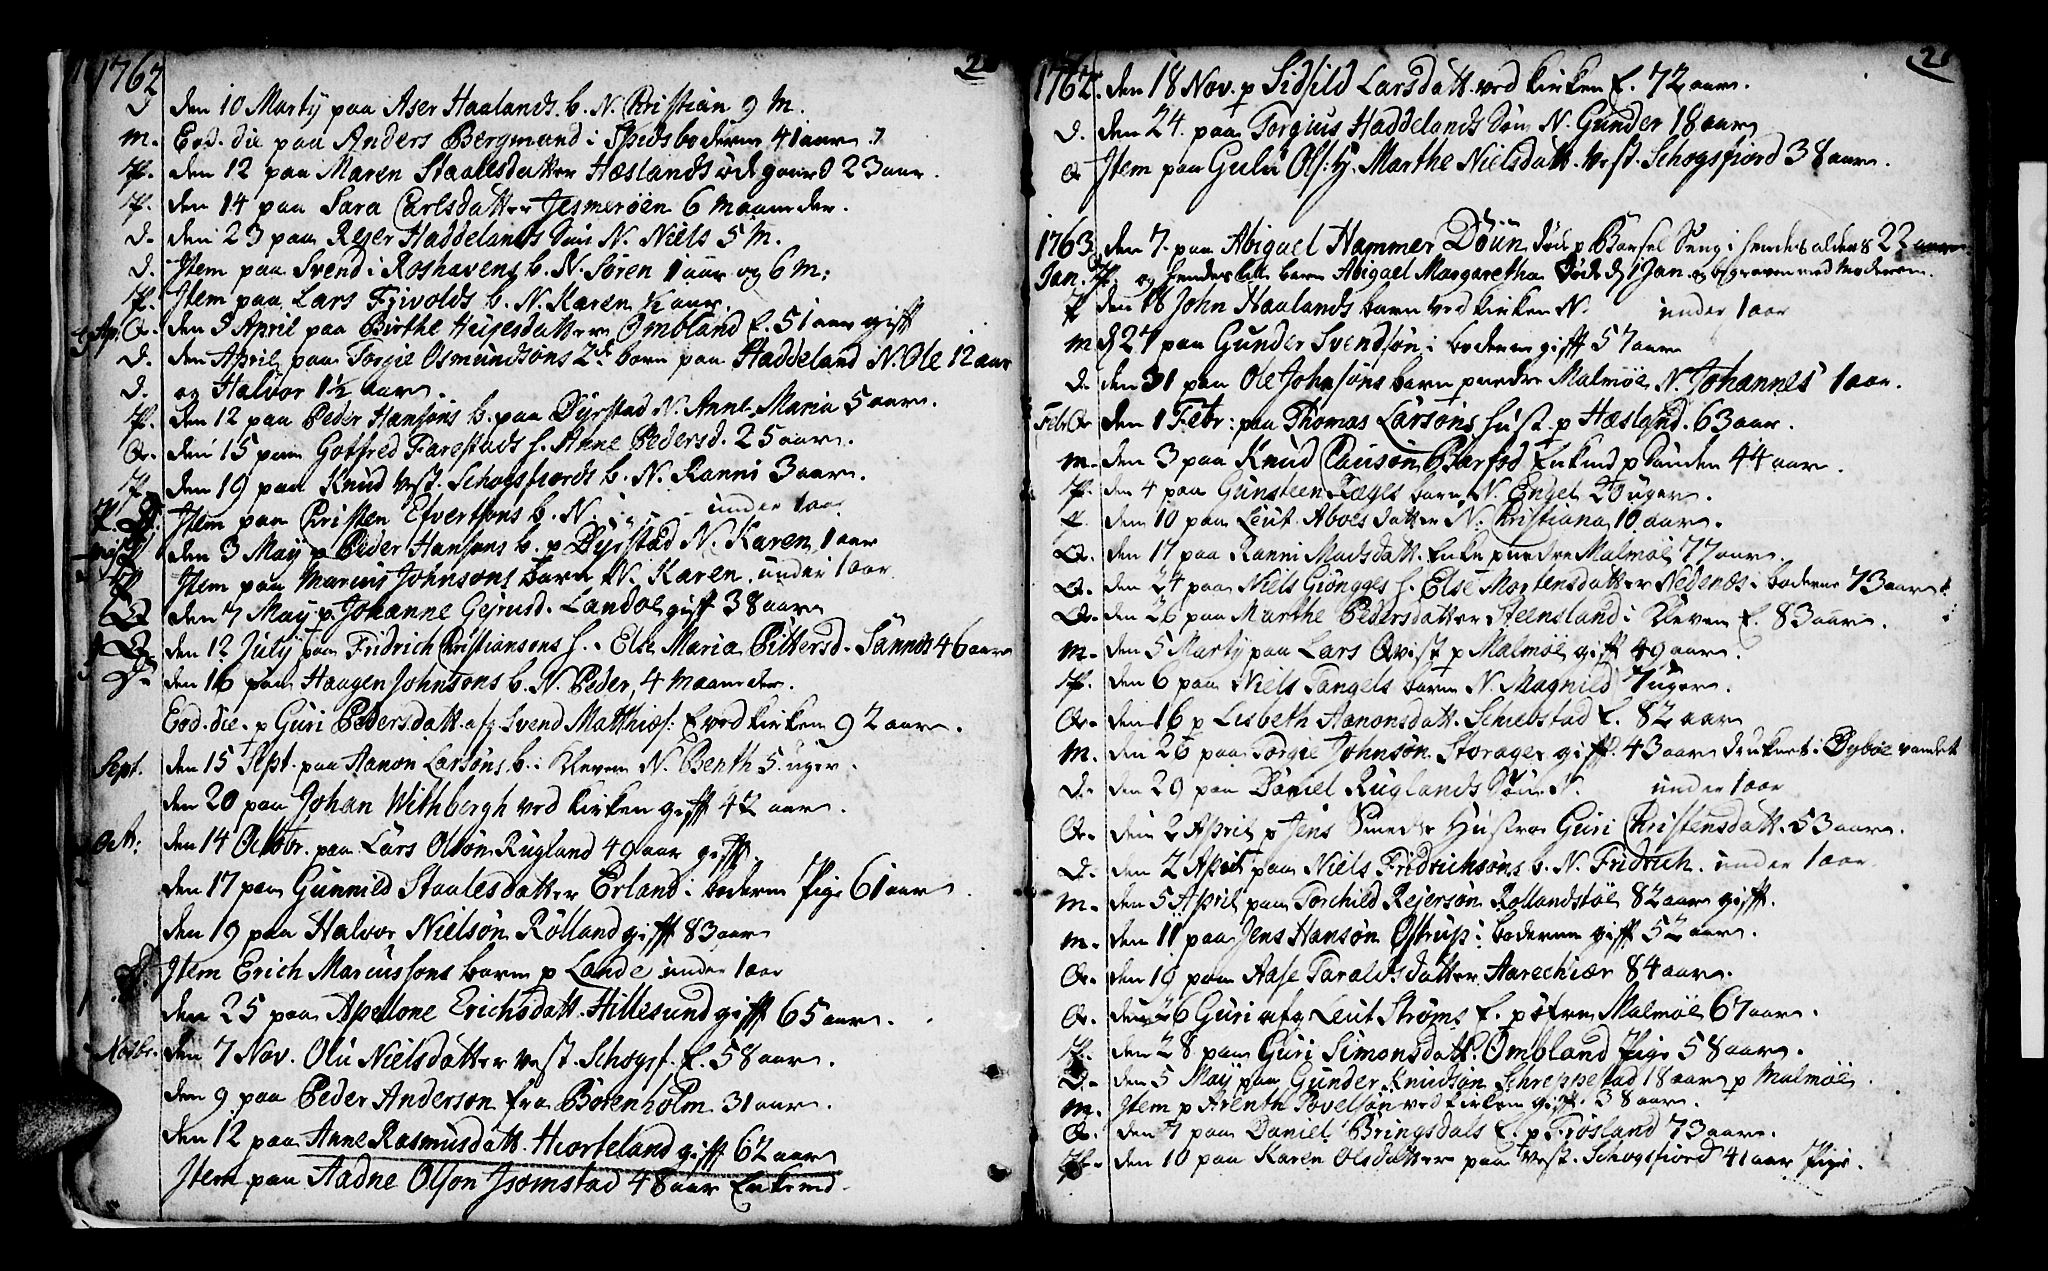 1762
D. den 10 Martij paa Aser Haalands b. N. Christian 9 M.
M. Eod. die paa Anders Bergmand i Spidsboderne 41 aar
P. den 12 paa Maren Staalesdatter Hæslands ødegaard 23 aar.
P. den 14 paa Sara Carlsdatter Jesmerøen 6 maaneder.
D. den 23 paa Rejer Haddelands Søn N. Niels 5 M.
D. Item paa Svend i Roshavens b. N. Søren 1 aar og 6 M:
P. Item paa Lars Fjivolds b. N. Karen ½ aar.
Ap. Q. den 5 April paa Birthe Heijesdatter Ombland E. 51 aar gift
D. den April paa Torgie Osmundsøns 2de børn paa Haddeland N. Ole 12 aar
D. og Halvor 1½ aar.
P. den 12 paa Peder Hansøns b. paa Dyrstad N. Anne Maria 5 aar.
Q. den 15 paa Gotfred Farestads h. Anne Pedersd. 25 aar.
P. den 19 paa Knud Vest. Schogsfiords b. N. Ranni 3 aar.
Item paa Christen Efvertsøns b. N. under 1 aar
den 3 Maij p Peder Hansøns b. p Dyrstad N. Karen 1 aar
P. Item paa Marcus Johnsons barn N. Karen. under 1 aar
Q. den 7 Maij p. Johanne Gejrusd. Landøe gift 38 aar
Q. den 12 July paa Fridrich Christiansens h. Else Maria Pittersd. Sannes 46 aar
D. den 16 paa Haagen Johnsons b. N. Peder, 4 maaneder.
Eod. die. p Guri Pedersdatt. afg Svend Matthiæs: E ved kirken 92 aar.
Sept. den 15 Sept. paa Aanon Larsøns b. i Kleven N. Benth 5 uger.
den 20 paa Johan Withbergh ved kirken gift 42 aar.
Oct: den 14 Octobr. paa Lars Olsøn Rugland 49 aar gift.
den 17 paa Gunnild Staalesdatter Erland i boderne Pige 61 aar.
den 19 paa Halvor Nielsøn Rølland gift 83 aar
Item Erich Marcussons barn p Lande under 1 aar
den 25 paa Apellone Erichsdatt. Hillesund gift 65 aar.
Novbr. den 7 Nov. Olu Nielsdatter Vest. Schogsf. E. 58 aar.
den 9 paa Peder Anderson fra Borenholm 31 aar.
den 12 paa Anne Rasmusdatt. Hiorteland gift 62 aar
Item paa Aadne Olson Isomstad 48 aar Enkemd.
1762. den 18 Nov. p Sidsild Larsdatt. ved kirken E. 72 aar.
D. den 24. paa Torgius Haddelands Søn N. Gunder 18 aar
Q Item paa Gulu Ols: H. Marthe Nielsdatt. Vest. Schogsfiord 38 aar.
1763 den 7. paa Abigael Hammer Döün død p Barsel Seng i hendes alders 22 aar
Jan. P. og hendes lill. barn Abigael Margaretha Døde d 1 Jan. og begraven med Moderen.
P den 18 John Haalands barn ved kirken N. under 1 aar
M d 27 paa Gunder Svendsøn i boderne gift 57 aar
D. den 31 paa Ole Johnsøns barn p nedre Malmøe N. Johannes 1 aar.
Febr Q den 1 Febr: paa Thomas Larsons Hust. p Hæsland. 63 aar.
M. den 3 paa Knud Clausøn Barfod Enkemd p Sanden 44 aar.
P. den 4 paa Gunsteen Ræges barn N. Engel 20 uger.
P. den 10 paa Leut. Aboes datter N. Christiana 10 aar.
Q. den 17 paa Ranni Madsdatt. Enke p nedre Malmøe 77 aar.
Q. den 24 paa Niels Giøngges h. Else Mortensdatter Nedenæs i boderne 73 aar
Q. den 26 paa Marthe Pedersdatter Steensland i Kleven E. 83 aar.
M. den 5 Martij paa Lars Qvist p Malmøe gift 49 aar.
P. den 6 paa Niels Tangels barn N. Magnild 7 uger.
Q. den 16 p Lisbeth Aanonsdatt. Schiebstad E. 82 aar
M. den 26 paa Torgie Johnsøn Storager gift. 43 aar druknet i Øybøe vandet
D. den 29 paa Daniel Ruglands Søn N. under 1 aar
Q. den 2 April p Jens Smeds Hustroe Guri Christensdatt. 53 aar.
D. den 2 April paa Niels Fridrichsøns b. N. Fridrich. under 1 aar
M. den 5 April paa Torchild Rejersøn Rollandstøl 82 aar gift.
M. den 11 paa Jens Hansøn Ostrup i boderne gift 52 aar.
Q. den 19 paa Aase Taraldsdatter Aarechiær 84 aar.
Q. den 26 Guri afg Leut Strøms E. p øfre Malmøe 67 aar.
P. den 28 paa Guri Simonsdatt. Ombland Pige 58 aar.
D. den 5 Maij paa Gunder Knudsøn Schreppestad 18 aar p Malmøe.
M. Item p Arenth Povelsøn ved kirken gift. 38 aar.
Q. den 7 paa Daniel Bringsdals E. p Frøsland 73 aar.
P. den 10 paa Karen Olsdatter paa Vest. Schogsfiord 41 aar Pige.